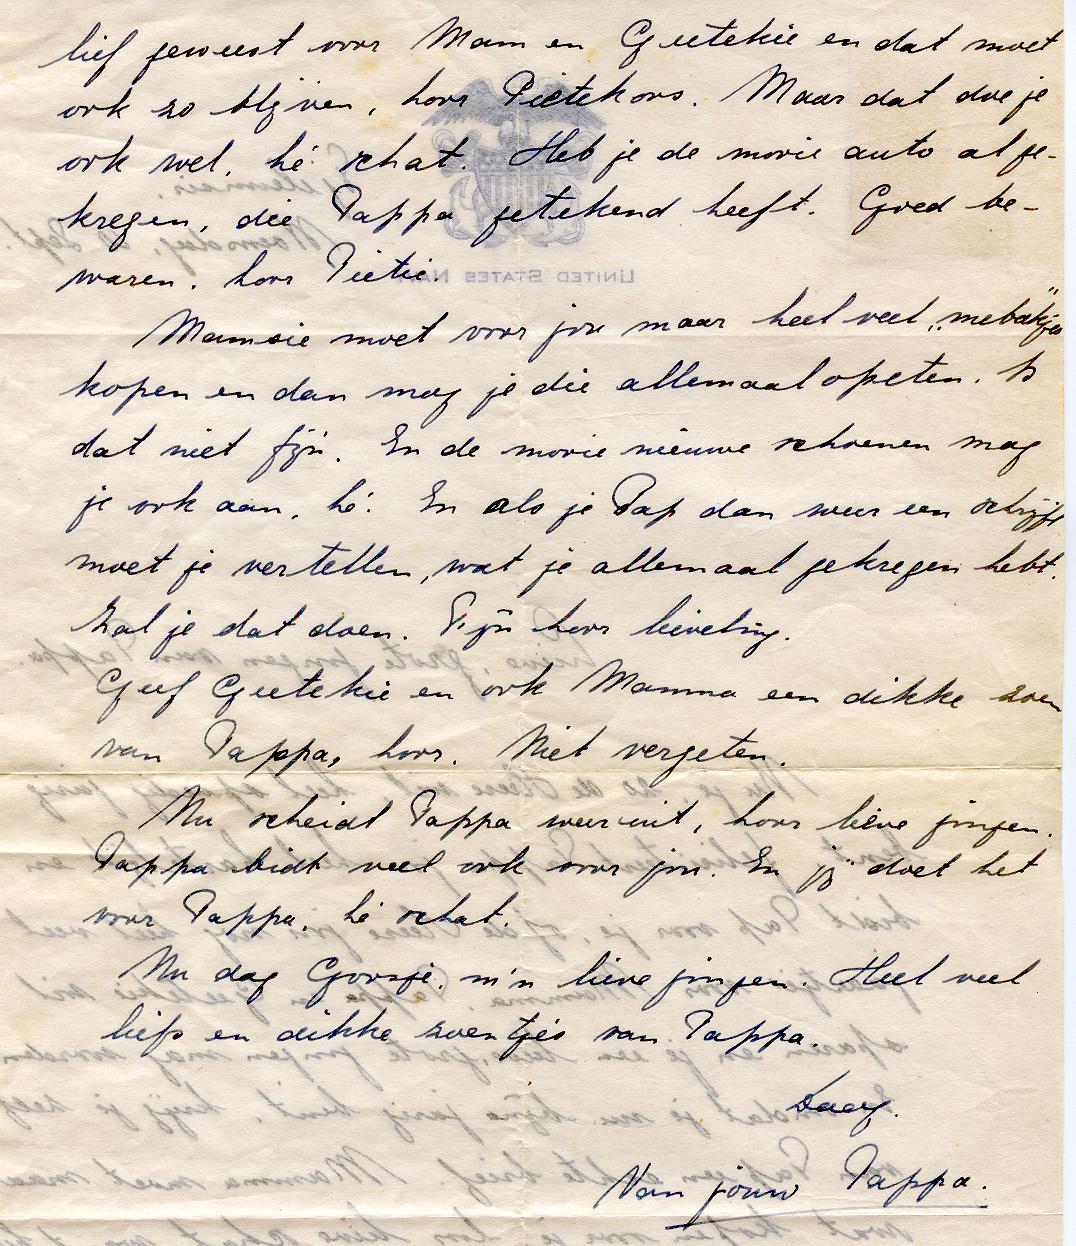 lief geweest voor Mam en Geetekie en dat moet
ook zo blijven, hoor Pietekoos. Maar dat doe je
ook wel, hé schat. Heb je de mooie auto al ge-
kregen, die Pappa getekend heeft. Goed be-
waren. hoor Pietie.
UNITED STATES NAVY
Mamsie moet voor jou maar heel veel
kopen en dan mag je die allemaal opeten. Is
dat niet fijn. En de mooie nieuwe schoenen mag
je ook aan, hé. En als je Pap dan weer een schrijft
moet je vertellen, wat je allemaal gekregen hebt.
Zal je dat doen. Fijn hoor lieveling.
Geef Geetekie en ook Mamma een dikke zoen
van Pappa, hoor. Niet vergeten.
Nu scheidt Pappa weer uit, hoor lieve jongen.
Pappa bidt veel ook voor jou. En jij doet het
voor Pappa, hé schat.
Nu dag Goosje, m'n lieve jongen. Heel veel
liefs en dikke zoentjes van Pappa.
Daag.
Van jouw Pappa.